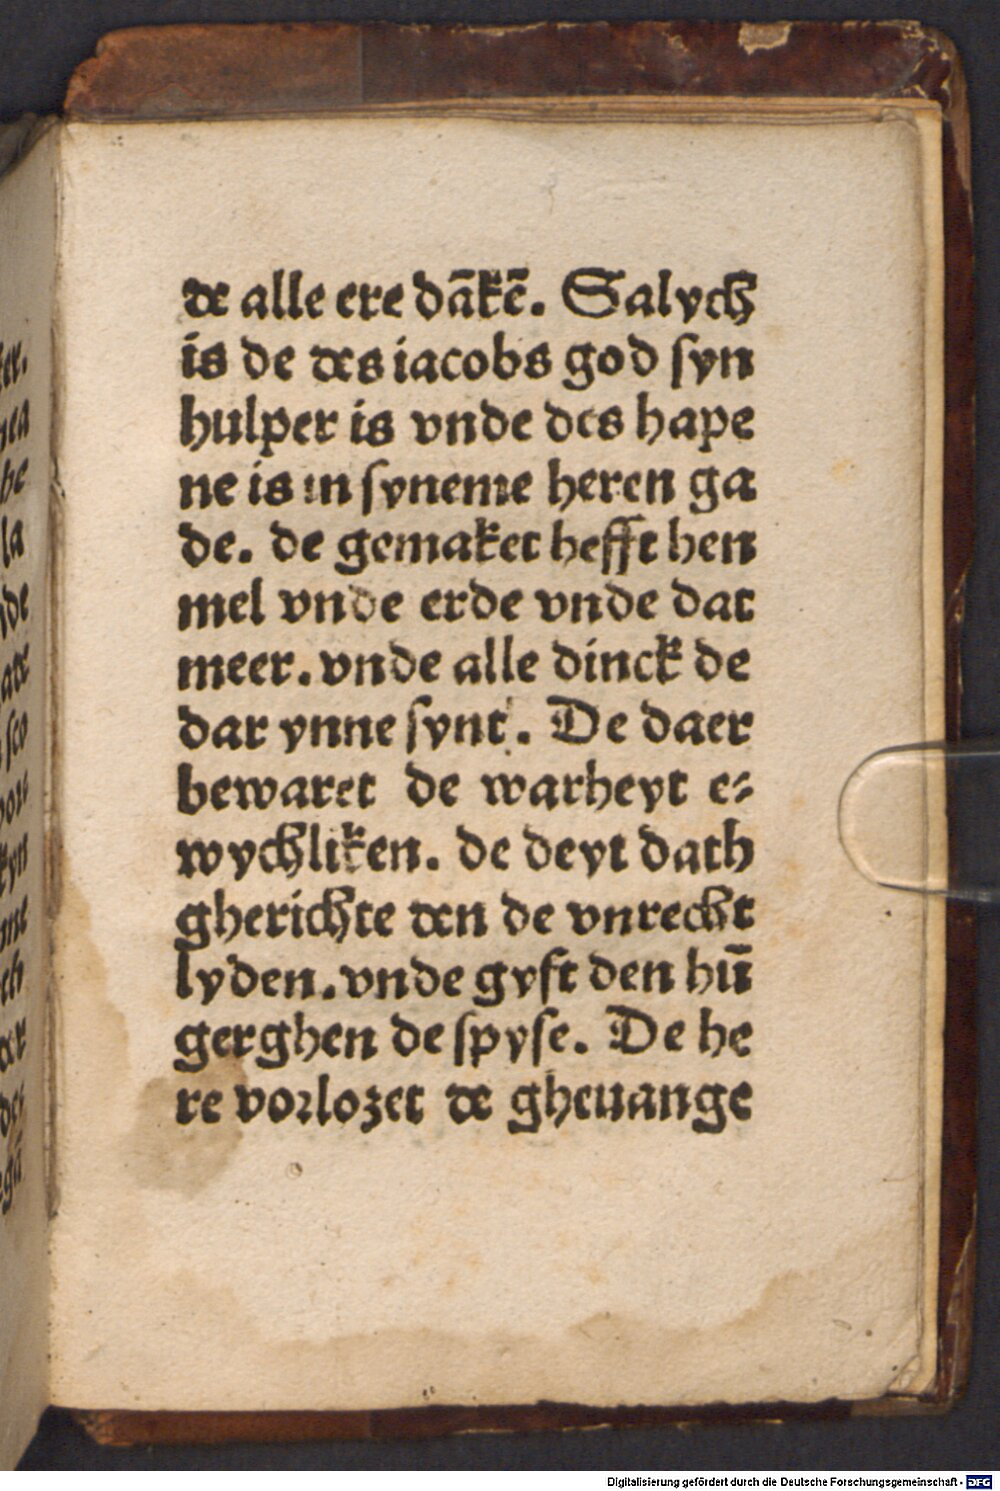 de alle ere dākē. Salych
is de des iacobs god syn
hulper is vnde des hape
ne is in syneme heren ga
de. de gemaket hefft hem
mel vnde erde vnde dat
meer. vnde alle dinck de
dar ynne synt. De daer
bewaret de warheyt e-
wychliken. de deyt dath
gherichte den de vnrecht
lyden. vnde gyft den hū
gerghen de spyse. De he
re vorlozet de gheuange
Digitalisierung gefördert durch die Deutsche Forschungsgemeinschaft - DFG